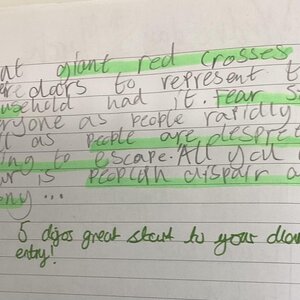 at giant red crosses
doors to represent t
household had it. Fear s
eryone as people rapidly
as people are despre
ing to escape. All you
is people in dispair a
ony ...
5 dojos great start to your diary
entry!